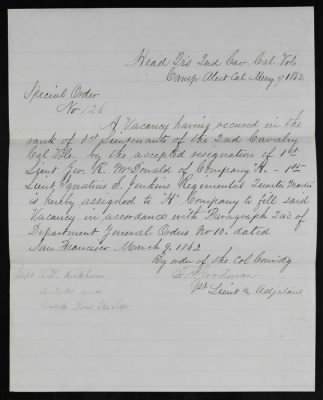 Head Qrs 2nd Cav. Cal. Vols
Camp Alert Cal May 9 1862
Special Order
No 126
A Vacancy having occured in the
rank of 1st Lieutenants of the 2nd Cavalry
Cal. Vols, by the accepted resignation of 1st
Lieut Geo. R. McDonald of Company "H." - 1st
Lieut. Ignatius S. Jenkins Regimental Quarter Master
is hereby assigned to "H" Company to fill said
Vacancy in accordance with Paragraph 2nd of
Department General Orders No 10. dated
San Francisco March 9. 1862
By order of the Col Comndg
1st Lieut & Adjutant
Capt R. W. Kirkham